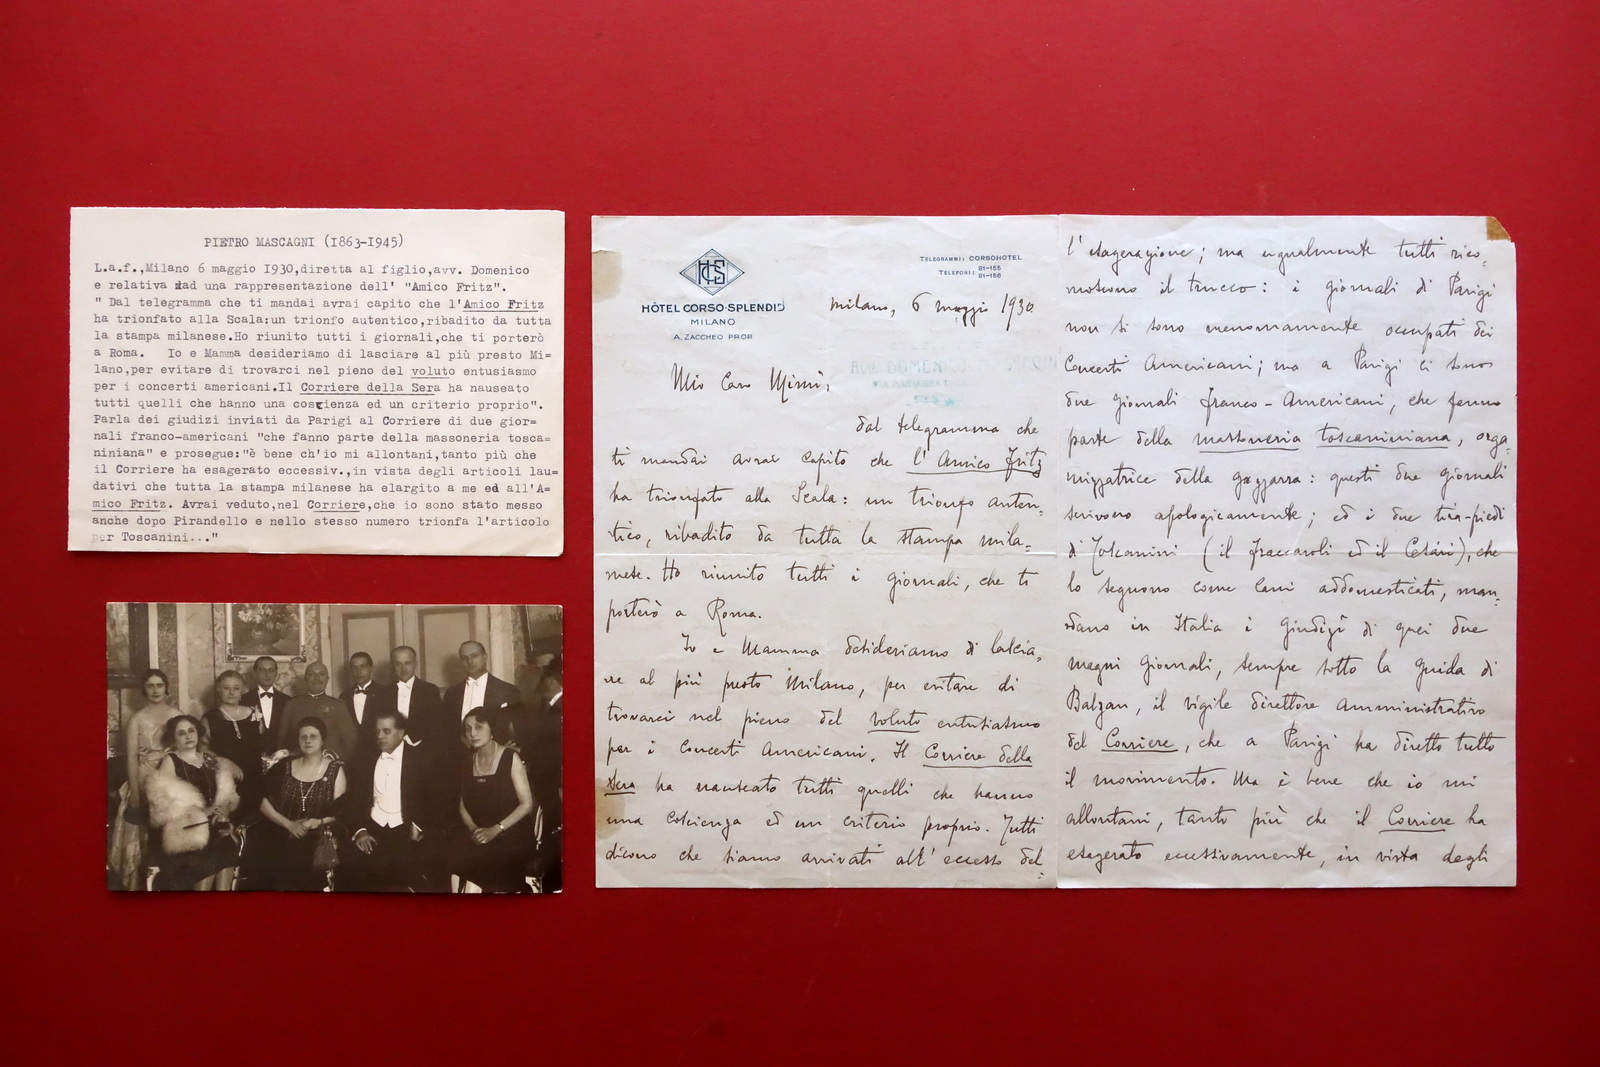 PIETRO MASCAGNI (1863-1945)
L.a.f.,Milano 6 maggio 1930,diretta al figlio,avv. Domenico
e relativa ad una rappresentazione dell' "Amico Fritz".
" Dal telegramma che ti mandai avrai capito che l'Amico Fritz
ha trionfato alla Scala:un trionfo autentico,ribadito da tutta
la stampa milanese.Ho riunito tutti i giornali,che ti porterò
a Roma. Io e Mamma desideriamo di lasciare al più presto Mi=
lano,per evitare di trovarci nel pieno del voluto entusiasmo
per i concerti americani.Il Corriere della Sera ha nauseato
tutti quelli che hanno una coscienza ed un criterio proprio".
Parla dei giudizi inviati da Parigi al Corriere di due gior=
nali franco-americani "che fanno parte della massoneria tosca=
niniana" e prosegue:"è bene ch'io mi allontani,tanto più che
il Corriere ha esagerato eccessiv.,in vista degli articoli lau=
dativi che tutta la stampa milanese ha elargito a me ed all'A=
mico Fritz. Avrai veduto,nel Corriere,che io sono stato messo
anche dopo Pirandello e nello stesso numero trionfa l'articolo
per Toscanini..."
HCS
HÔTEL CORSO-SPLENDID
MILANO
A. ZACCHEO PROP.
TELEGRAMMI: CORSOHOTEL
TELEFONI: 81-155
81-156
Milano, 6 maggio 1930
Mio Caro Mimì,
dal telegramma che
ti mandai avrai capito che l'Amico Fritz
ha trionfato alla Scala: un trionfo auten=
tico, ribadito da tutta la stampa mila=
nese. Ho riunito tutti i giornali, che ti
porterò a Roma.
Io e Mamma desideriamo di lascia=
re al più presto Milano, per evitare di
trovarci nel pieno del voluto entusiasmo
per i Concerti Americani. Il Corriere della
Sera ha nauseato tutti quelli che hanno
una coscienza ed un criterio proprio. Tutti
dicono che siamo arrivati all'eccesso del=
l'esagerazione; ma ugualmente tutti rico=
noscono il trucco: i giornali di Parigi
non si sono menomamente occupati dei
Concerti Americani; ma a Parigi ci sono
due giornali franco-Americani, che fanno
parte della massoneria toscaniniana, orga=
nizzatrice della gazzarra: questi due giornali
scrivono apologicamente; ed i due tira-piedi
di Toscanini (il Fraccaroli ed il Cesàri), che
lo seguono come cani addomesticati, man=
dano in Italia i giudizî di quei due
magni giornali, sempre sotto la guida di
Balzan, il vigile direttore amministrativo
del Corriere, che a Parigi ha diretto tutto
il movimento. Ma è bene che io mi
allontani, tanto più che il Corriere ha
esagerato eccessivamente, in vista degli